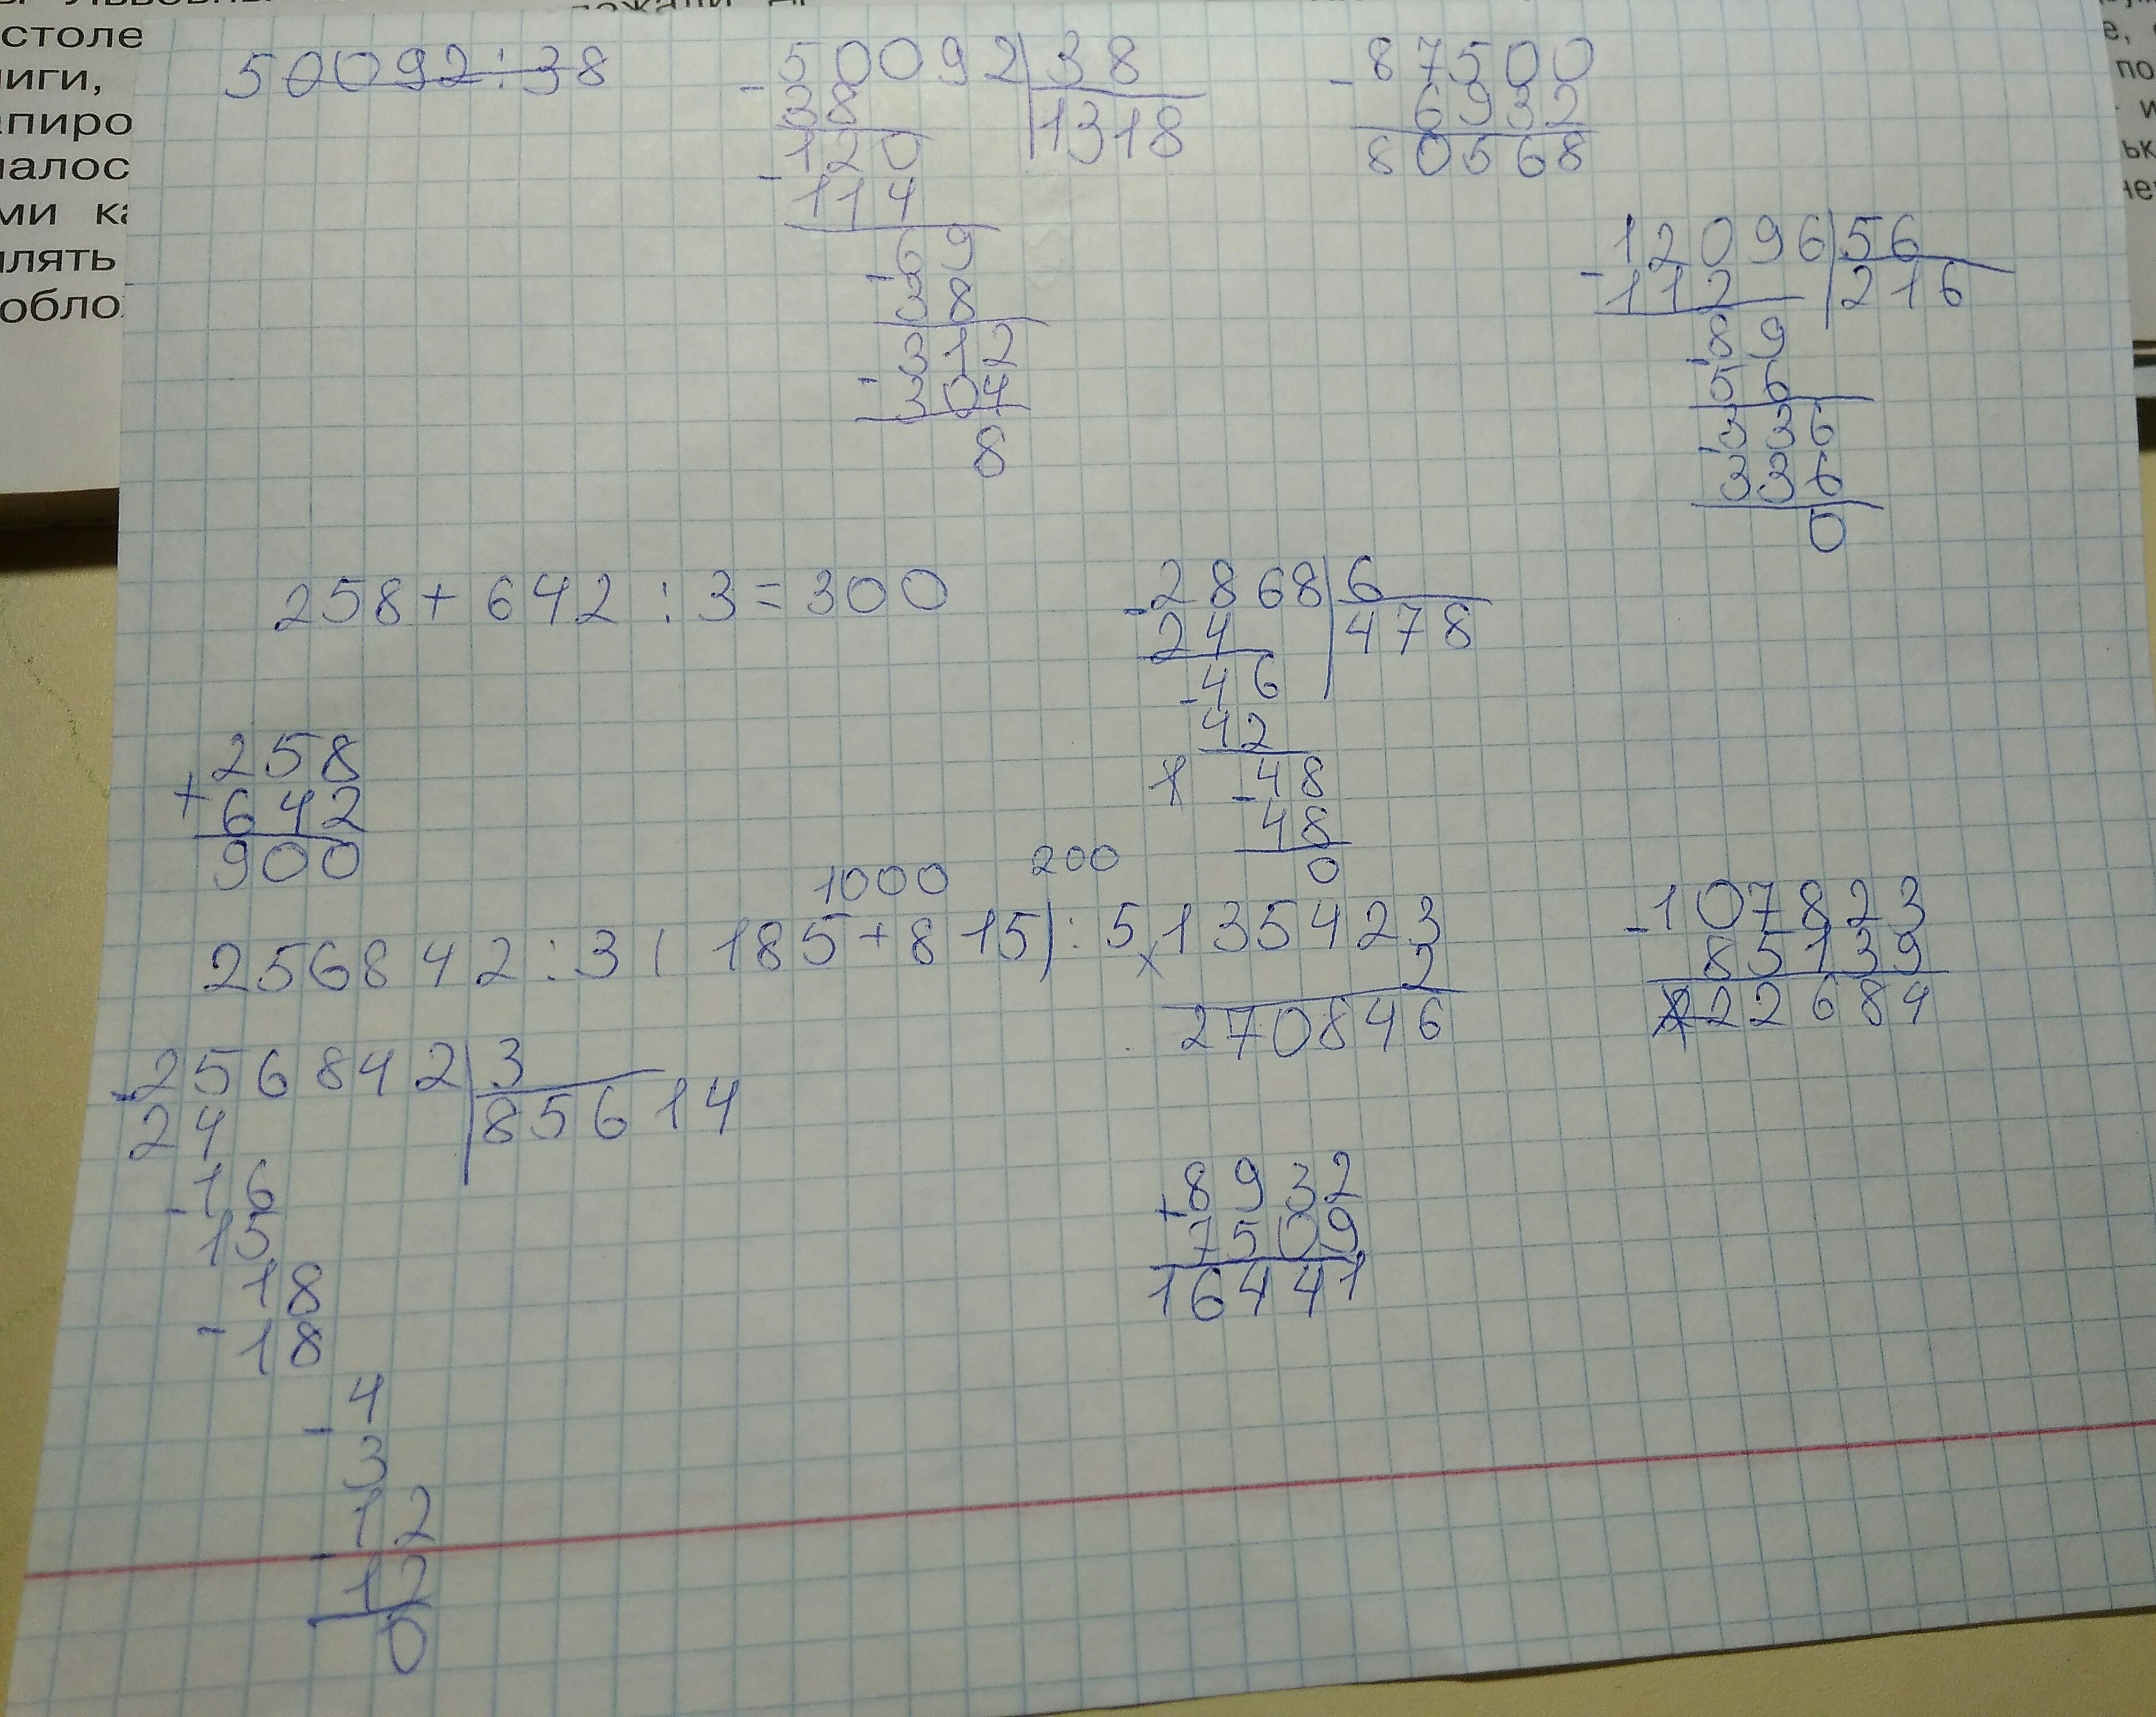 столе
50092:38
50092 38
38
1318
120
114
69
38
312
304
8
87500
- 6932
80568
12096 56
- 112
216
89
56
336
336
0
258+642:3=300
2868 6
- 24
478
- 46
42
- 48
48
0
258
+ 642
900
1000 200
256842:3(185+815):5
135423
x 2
270846
107823
- 85139
22684
256842 3
- 24
85614
- 16
15
18
- 18
4
- 3
12
- 12
0
8932
+ 7509
16441